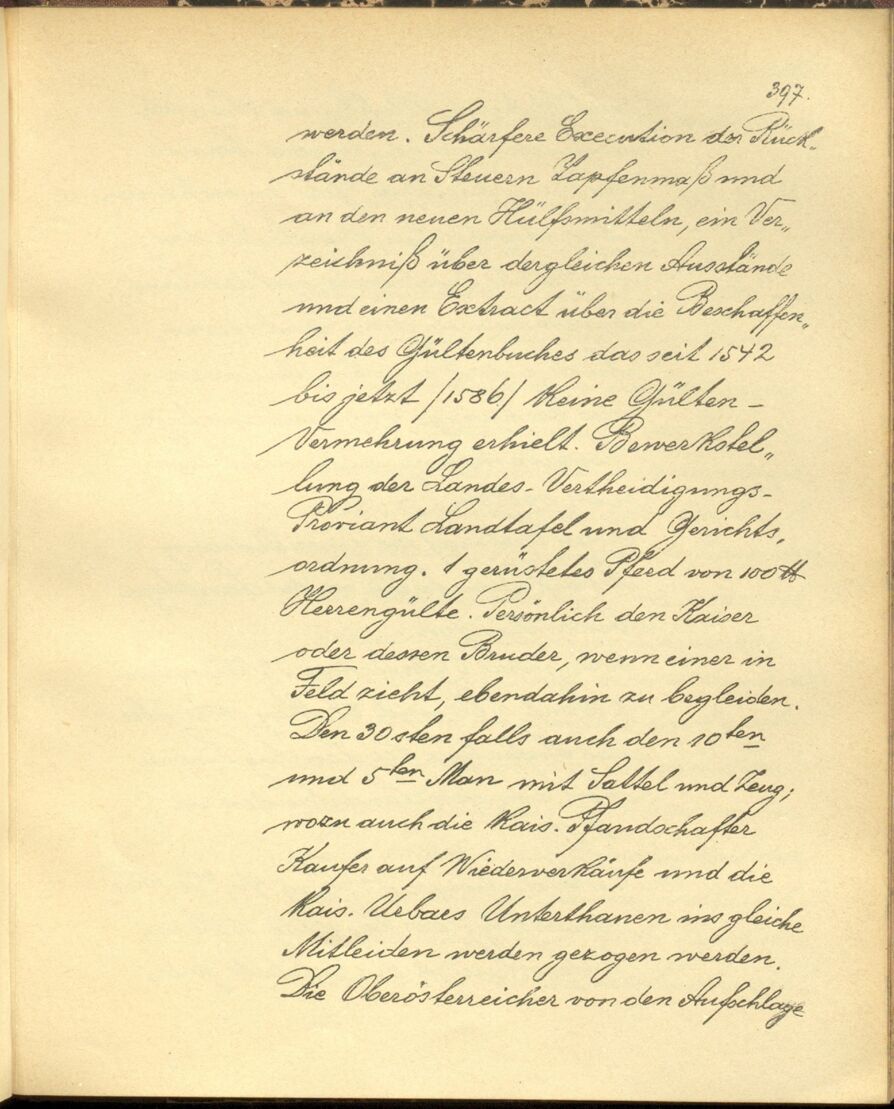 397.
werden. Schärfere Execution der Rück-
stände an Steuern Zapfenmaß und
an den neuen Hülfsmitteln, ein Ver„
zeichniß über dergleichen Ausstände
und einen Extract über die Beschaffen„
heit des Gültenbuches das seit 1542
bis jetzt /1586/ keine Gülten-
Vermehrung erhielt. Bewerkstel„
lung der Landes-Vertheidigungs-
Proviant Landtafel und Gerichts„
ordnung. 1 gerüstetes Pferd von 100 ℔
Herrengülte. Persönlich den Kaiser
oder dessen Bruder, wenn einer in
Feld zieht, ebendahin zu begleiden.
Den 30sten falls auch den 10ten
und 5ten Man mit Sattel und Zeug;
wozu auch die Kais. Pfandschafter
Kaufer auf Wiederverkäufe und die
Kais. Uebars Unterthanen ins gleiche
Mitleiden werden gezogen werden.
Die Oberösterreicher von den Aufschlage